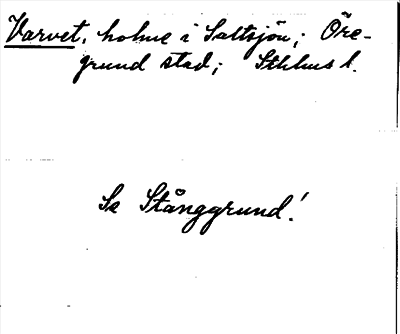 Varvet, holme i Saltsjön; Öre-
grund stad; Sthlms l.
Se Stånggrund!